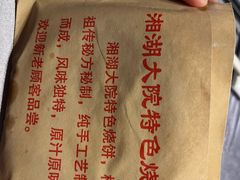 湘湖大院特色烧
湘湖大院特色烧饼,
祖传秘方秘制,纯手工艺制
而成,风味独特,原汁原味
欢迎新老顾客品尝。